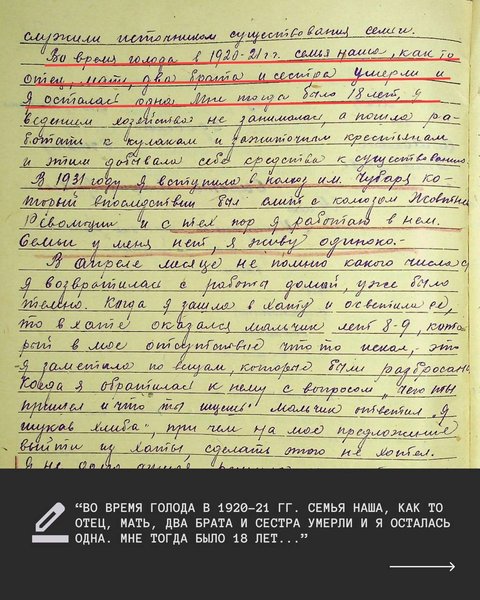 служили источником существования семьи.
Во время голода в 1920-21 гг. семья наша, как то
отец, мать, два брата и сестра умерли и
я осталась одна. Мне тогда было 18 лет, я
ведением хозяйства не занималась, а пошла ра-
ботать к кулакам и зажиточным крестьянам
и этим добывала себе средства к существованию.
В 1931 году я вступила в колхоз им. Чубаря ко-
торый впоследствии был слит с колхозом Жовтнева
Революция и с тех пор я работаю в нем.
Семьи у меня нет, я живу одиноко.-
В апреле месяце не помню какого числа
я возвратилась с работы домой, уже было
темно. Когда я зашла в хату и осветила ее,
то в хате оказался мальчик лет 8-9, кото
рый в мое отсутствие что то искал,- это
я заметила по вещам, которые были разбросаны
Когда я обратилась к нему с вопросом „чего ты
пришел и что ты ищешь" мальчик ответил „я
шукав хлиба", при чем на мое предложение
выйти из хаты, сделать этого не хотел.
Я не
“ВО ВРЕМЯ ГОЛОДА В 1920–21 ГГ. СЕМЬЯ НАША, КАК ТО
ОТЕЦ, МАТЬ, ДВА БРАТА И СЕСТРА УМЕРЛИ И Я ОСТАЛАСЬ
ОДНА. МНЕ ТОГДА БЫЛО 18 ЛЕТ...”